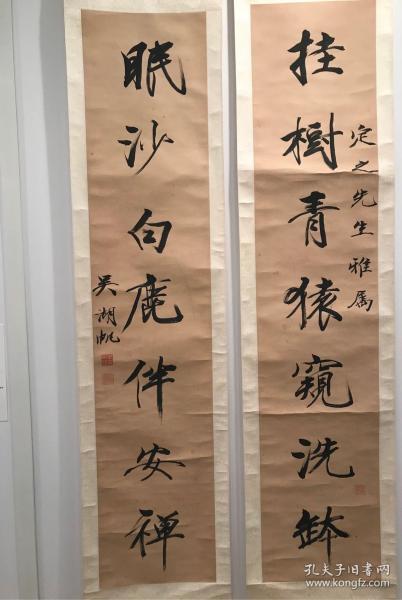 挂樹青猿窺洗鉢
定之先生雅属
眠沙白鹿伴安禅
吴湖帆
孔夫子旧书网
www.kongfz.com